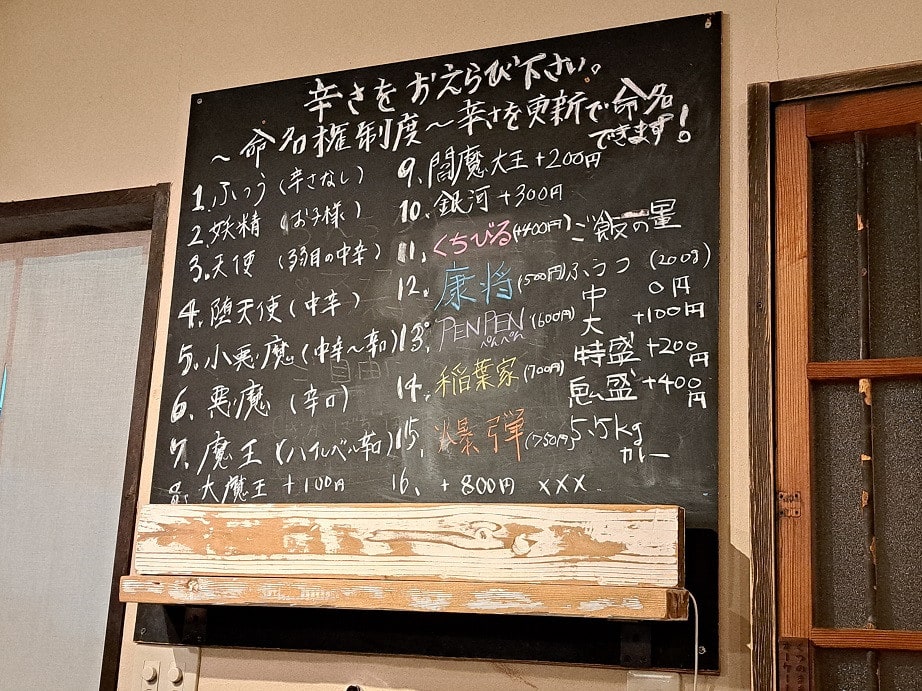 辛さをおえらび下さい。
～命名権制度～辛さを更新で命名
できます!
1. ふつう (辛さなし)
2. 妖精 (お子様)
3. 天使 (弱目の中辛)
4. 堕天使 (中辛)
5. 小悪魔 (中辛～辛口)
6. 悪魔 (辛口)
7. 魔王 (ハイレベル辛口)
8. 大魔王 +100円
9. 閻魔大王 +200円
10. 銀河 +300円
11. くちびる (+400円)
12. 康将 (500円)
13. PENPEN (600円)
ぺんぺん
14. 稲葉家 (700円)
15. 爆弾 (750円)
16. +800円 ×××
ご飯の量
ふつう (200g)
中 0円
大 +100円
特盛 +200円
盛 +400円
5.5kg
カレー